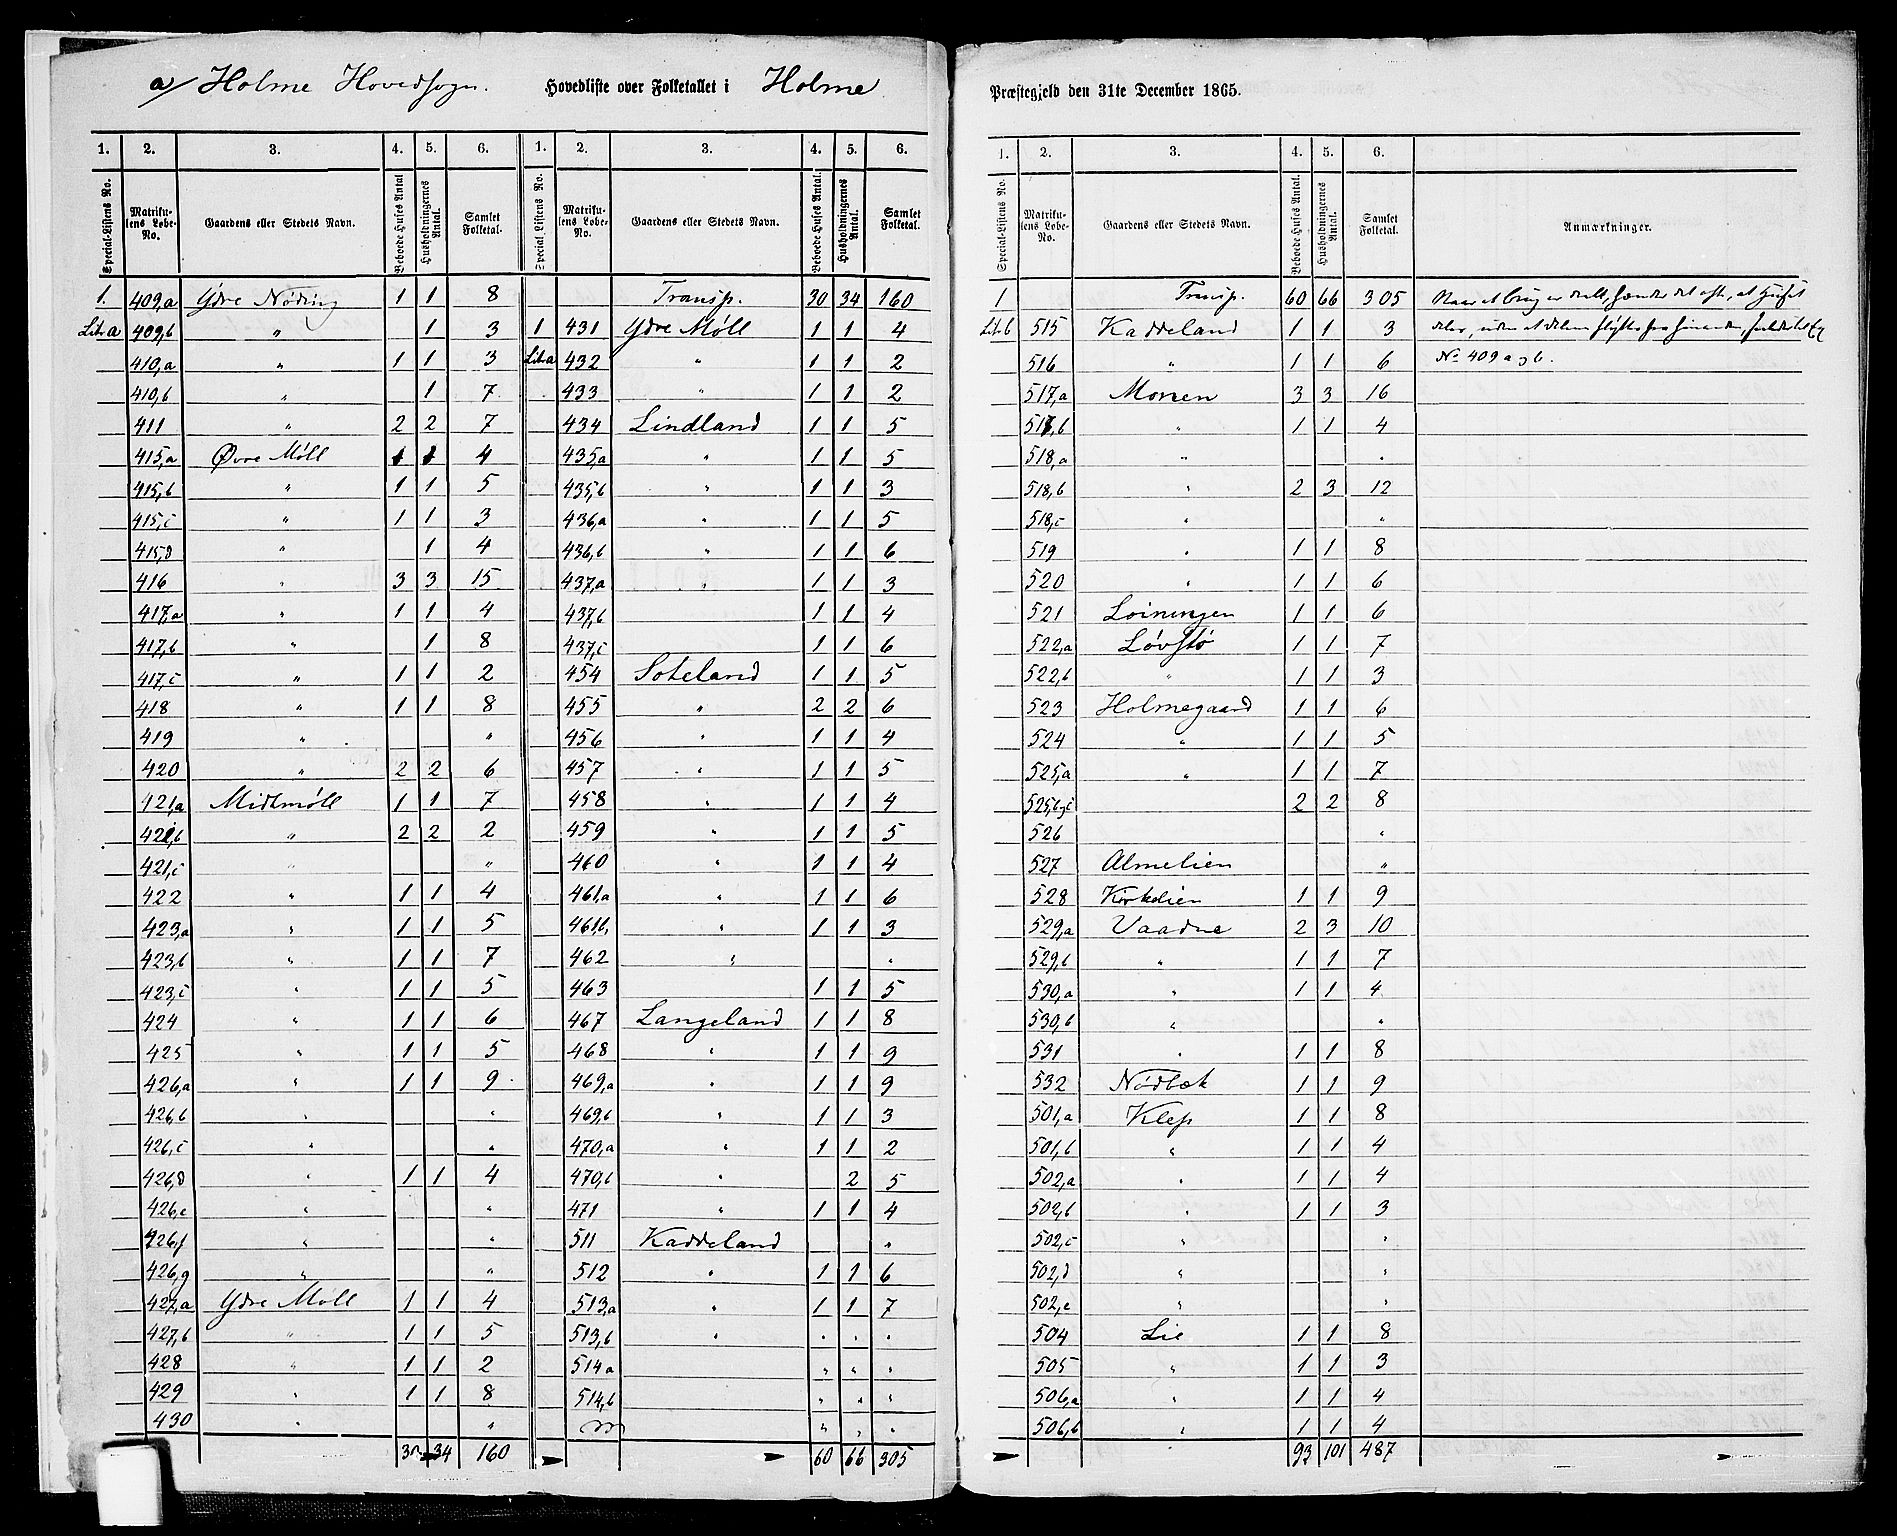 a/ Holme Hovedsogn. Hovedliste over Folketallet i Holme
Præstegjeld den 31te December 1865.
1. 2. 3. 4. 5. 6. 1. 2. 3. 4. 5. 6.
Special-Listens No. Matrikulens Løbe-No. Gaardens eller Stedets Navn. Beboede Huses Antal Husholdningernes Antal. Samlet Folketal. Special-Listens No. Matrikulens Løbe-No. Gaardens eller Stedets Navn. Beboede Huses Antal. Husholdningernes Antal. Samlet Folketal.
1. 409,a Ydre Nøding 1 1 8
Litr a 409,b " 1 3
410,a " 1 1 3
410,b " 1 7
411 " 2 2 7
415,a Øvre Møll 1 1 4
415,b " 1 1 5
415,c " 1 1 3
415,d " 1 4
416 " 3 3 15
417,a " 1 1 4
417,b " 1 8
417,c " 1 1 2
418 " 1 1 8
419 " "
420 " 2 2 6
421,a Midtmøll 1 1 7
421,b " 2 2 2
421,c "
422 " 1 1 4
423,a " 1 1 5
423,b " 1 1 7
423,c " 1 1 5
424 " 1 1 6
425 " 1 1 5
426,a " 1 1 9
426,b " "
426,c " "
426,d " 1 1 4
426,e " "
426,f " "
426,g " "
427,a Ydre Møll 1 1 4
427,b " 1 1 5
428 " 1 1 2
429 " 1 1 8
430 " "
30 34 160
Transp. 30 34 160
1 431 Ydre Møll 1 1 4
Litr a 432 " 1 1 2
433 " 1 1 2
434 Lindland 1 1 5
435,a " 1 1 5
435,b " 1 1 3
436,a " 1 1 5
436,b " 1 1 6
437,a " 1 1 3
437,b 1 1 4
437,c 1 1 6
454 Soteland 1 1 5
455 " 2 2 6
456 " 1 1 4
457 " 1 1 5
458 " 1 1 4
459 " 1 1 5
460 " 1 1 4
461,a " 1 1 6
461,b " 1 1 3
462 " "
463 1 1 5
467 Langeland 1 1 8
468 " 1 1 9
469,a " 1 1 9
469,b " 1 1 3
470,a " 1 1 2
470,b " 2 5
471 " 1 1 4
511 Kaddeland "
512 " 1 1 6
513,a " 1 1 7
513,b " " " "
514a " " "
514,b " " "
" " "
60 66 305
1. 2. 3. 4. 5. 6.
Special-Listens No. Matrikulens Løbe-No. Gaardens eller Stedets Navn. Beboede Huses Antal. Husholdningernes Antal. Samlet Folketal. Anmærkninger.
1 Transp. 60 66 305 Naar et brug er delt, hænder det ofte, at Huset
Litr b 515 Kaddeland 1 1 3 deles, uden at delene flyttes fra hinanden,
516 " 1 1 6 No 409 a og b.
517,a Monen 3 3 16
517,b " 1 1 4
518,a " "
518,b " 2 3 12
518,c " "
519 " 1 1 8
520 " 1 1 6
521 Loiningen 1 1 6
522,a Løvstø 1 1 7
522,b " 1 1 3
523 Holmegaard 1 1 6
524 " 1 1 5
525,a " 1 1 7
525,b og c 2 2 8
526 "
527 Almelien "
528 Kirkelien 1 1 9
529,a Vaadne 2 3 10
529,b " 1 1 7
530,a " 1 1 4
530,b " "
531 " 1 1 8
532 Nødbæk 1 1 9
501,a Klep 1 1 8
501,b " 1 1 4
502,a " 1 1 4
502,b " 1 1 3
502,c " "
502,d " "
502,e " "
504 Lie 1 1 8
505 " 1 1 3
506,a " 1 1 4
506,b " 1 1 4
93 101 487